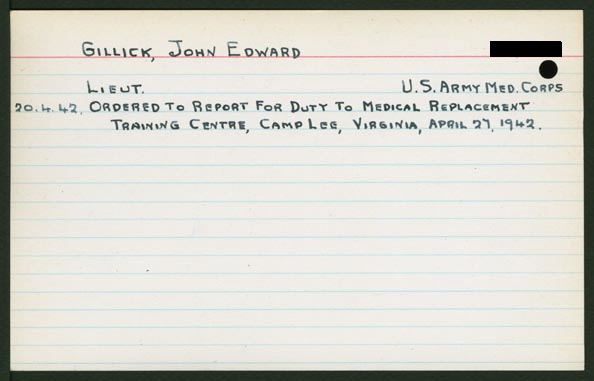 GILLICK, JOHN EDWARD
LIEUT. U.S. ARMY MED. CORPS
20.4.42. ORDERED TO REPORT FOR DUTY TO MEDICAL REPLACEMENT
TRAINING CENTRE, CAMP LEE, VIRGINIA, APRIL 27, 1942.